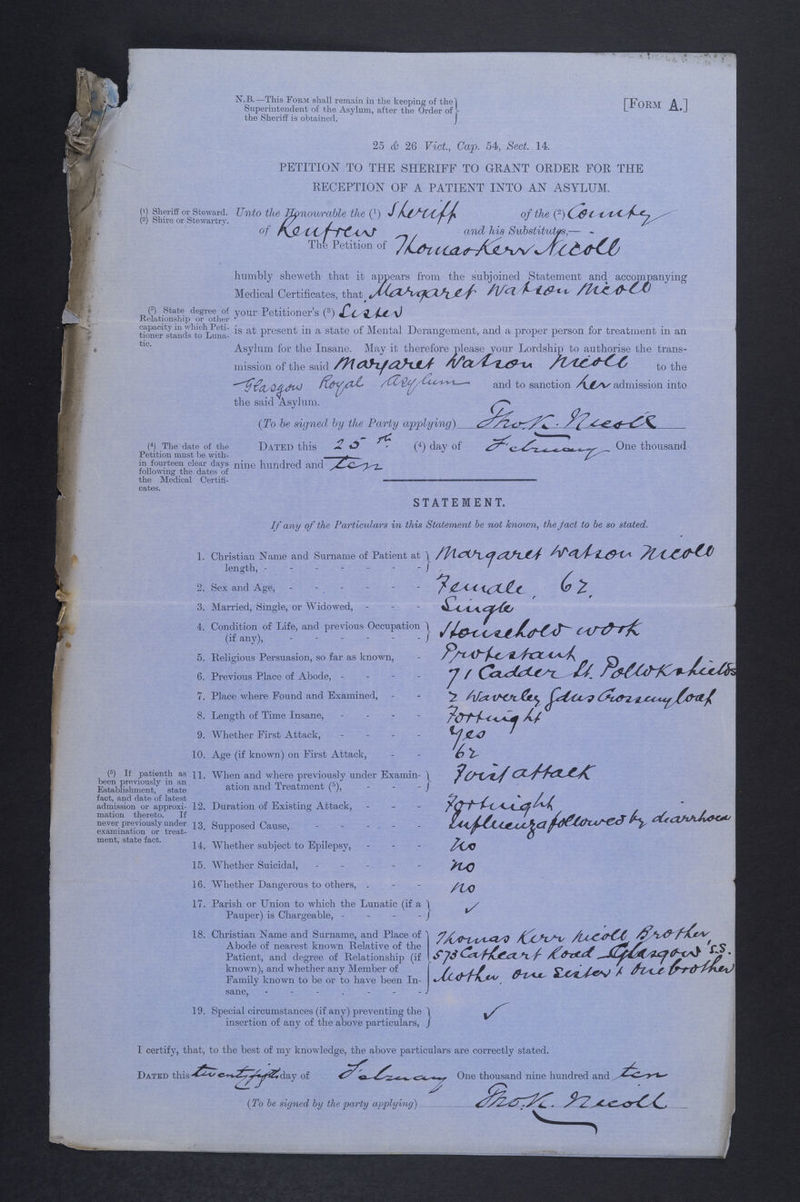 N.B.—This FORM shall remain in the keeping of the
Superintendent of the Asylum, after the Order of
the Sheriff is obtained.
[FORM A.]
25 & 26 Vict., Cap. 54, Sect. 14.
PETITION TO THE SHERIFF TO GRANT ORDER FOR THE
RECEPTION OF A PATIENT INTO AN ASYLUM.
(1) Sheriff or Steward.
(2) Shire or Stewartry.
Unto the Honourable the (1) Sheriff of the (2) County
of Renfrew and his Substitutes,—
The Petition of Thomas Kerr Nicoll
humbly sheweth that it appears from the subjoined Statement and accompanying
Medical Certificates, that Margaret Watson Nicoll
(3) State degree of
Relationship or other
capacity in which Peti-
tioner stands to Luna-
tic.
your Petitioner's (3) Sister
is at present in a state of Mental Derangement, and a proper person for treatment in an
Asylum for the Insane. May it therefore please your Lordship to authorise the trans-
mission of the said Margaret Watson Nicoll to the
Glasgow Royal Asylum and to sanction her admission into
the said Asylum.
(To be signed by the Party applying) Thos. K. Nicoll
(4) The date of the
Petition must be with-
in fourteen clear days
following the dates of
the Medical Certifi-
cates.
DATED this 25th (4) day of February One thousand
nine hundred and ten
STATEMENT.
If any of the Particulars in this Statement be not known, the fact to be so stated.
1. Christian Name and Surname of Patient at
length, - Margaret Watson Nicoll
2. Sex and Age, - Female, 62.
3. Married, Single, or Widowed, - Single
4. Condition of Life, and previous Occupation
(if any), - Household work
5. Religious Persuasion, so far as known, - Protestant
6. Previous Place of Abode, - 71 Cadder St. Pollokshields
7. Place where Found and Examined, - 2 Waverley Gdns Crossmyloaf
8. Length of Time Insane, - Fortnight
9. Whether First Attack, - Yes
10. Age (if known) on First Attack, - 62
(5) If patienth as
been previously in an
Establishment, state
fact, and date of latest
admission or approxi-
mation thereto. If
never previously under
examination or treat-
ment, state fact.
11. When and where previously under Examin-
ation and Treatment (5), - First attack
12. Duration of Existing Attack, - Fortnight
13. Supposed Cause, - Influenza followed by diarrhoea
14. Whether subject to Epilepsy, - No
15. Whether Suicidal, - no
16. Whether Dangerous to others, - no
17. Parish or Union to which the Lunatic (if a
Pauper) is Chargeable, - ✓
18. Christian Name and Surname, and Place of
Abode of nearest known Relative of the
Patient, and degree of Relationship (if
known), and whether any Member of
Family known to be or to have been In-
sane, -
Thomas Kerr Nicoll Brother,
573 Cathcart Road Glasgow S.S.
Mother, One Sister & One brother
19. Special circumstances (if any) preventing the
insertion of any of the above particulars, ✓
I certify, that, to the best of my knowledge, the above particulars are correctly stated.
DATED this twenty fifth day of February One thousand nine hundred and ten
(To be signed by the party applying) Thos. K. Nicoll